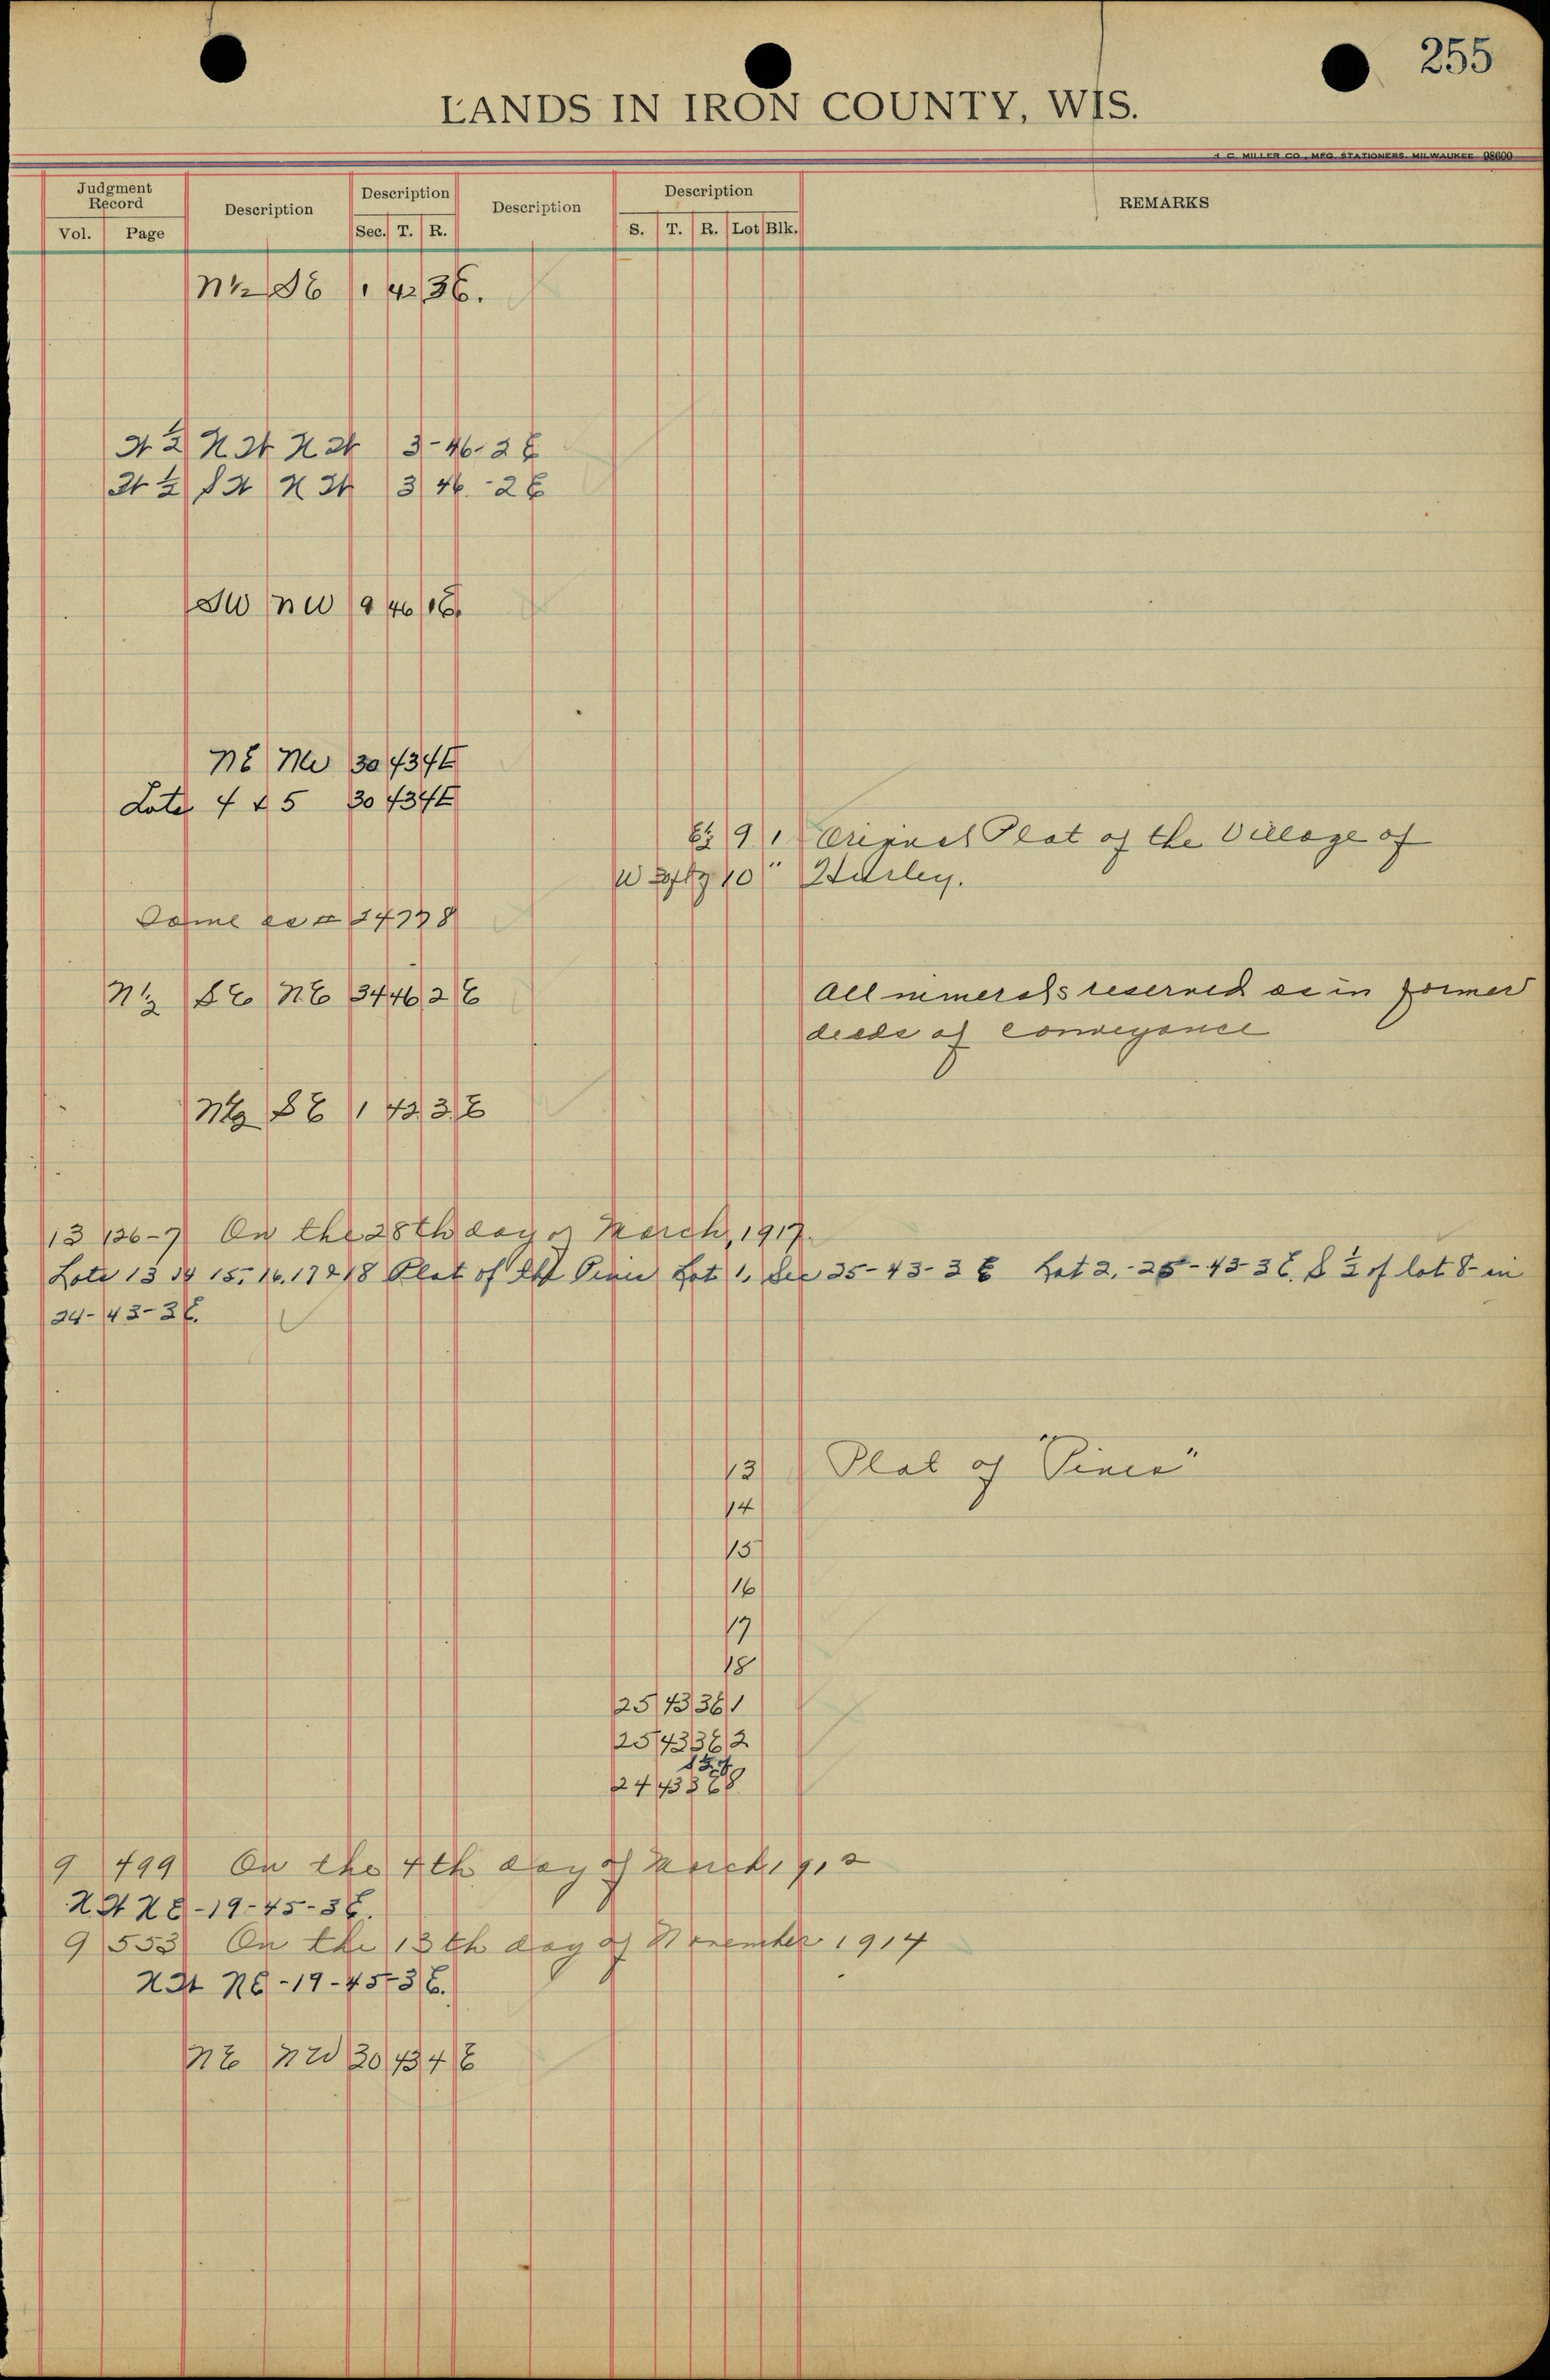 255
LANDS IN IRON COUNTY, WIS.
MILLER CO., MFG. STATIONERS MILWAUKEE 98600
Judgment Record
Description
Description
Description
Description
REMARKS
Vol. Page
Sec. T. R.
S. T. R. Lot Blk.
N½ SE 1 42 3E.
W ½ N W N W 3-46-2E
W ½ S W N W 3 46-2E
SW NW 9 46 1E
NE NW 30 43 4E
Lots 4 & 5 30 43 4E
E½ 9 1 Original Plat of the Village of
W 10 " Hurley.
Same as # 24798
N½ SE NE 34 46 2E
All minerals reserved as in former
deeds of conveyance
N½ SE 1 42 3E
13 126-7 On the 28th day of March, 1917.
Lots 13 14 15. 16. 17 & 18 Plat of Pines Lot 1, Sec 25-43-3E Lot 2,-25-43-3E. S ½ of lot 8-in
24-43-3E.
13 Plat of "Pines"
14
15
16
17
18
25 43 3E 1
25 43 3E 2
S½ of
24 43 3E 8
9 499 On the 4th day of March 1912
NW NE-19-45-3E.
9 553 On the 13th day of November 1914
NW NE-19-45-3E.
NE NW 30 43 4E